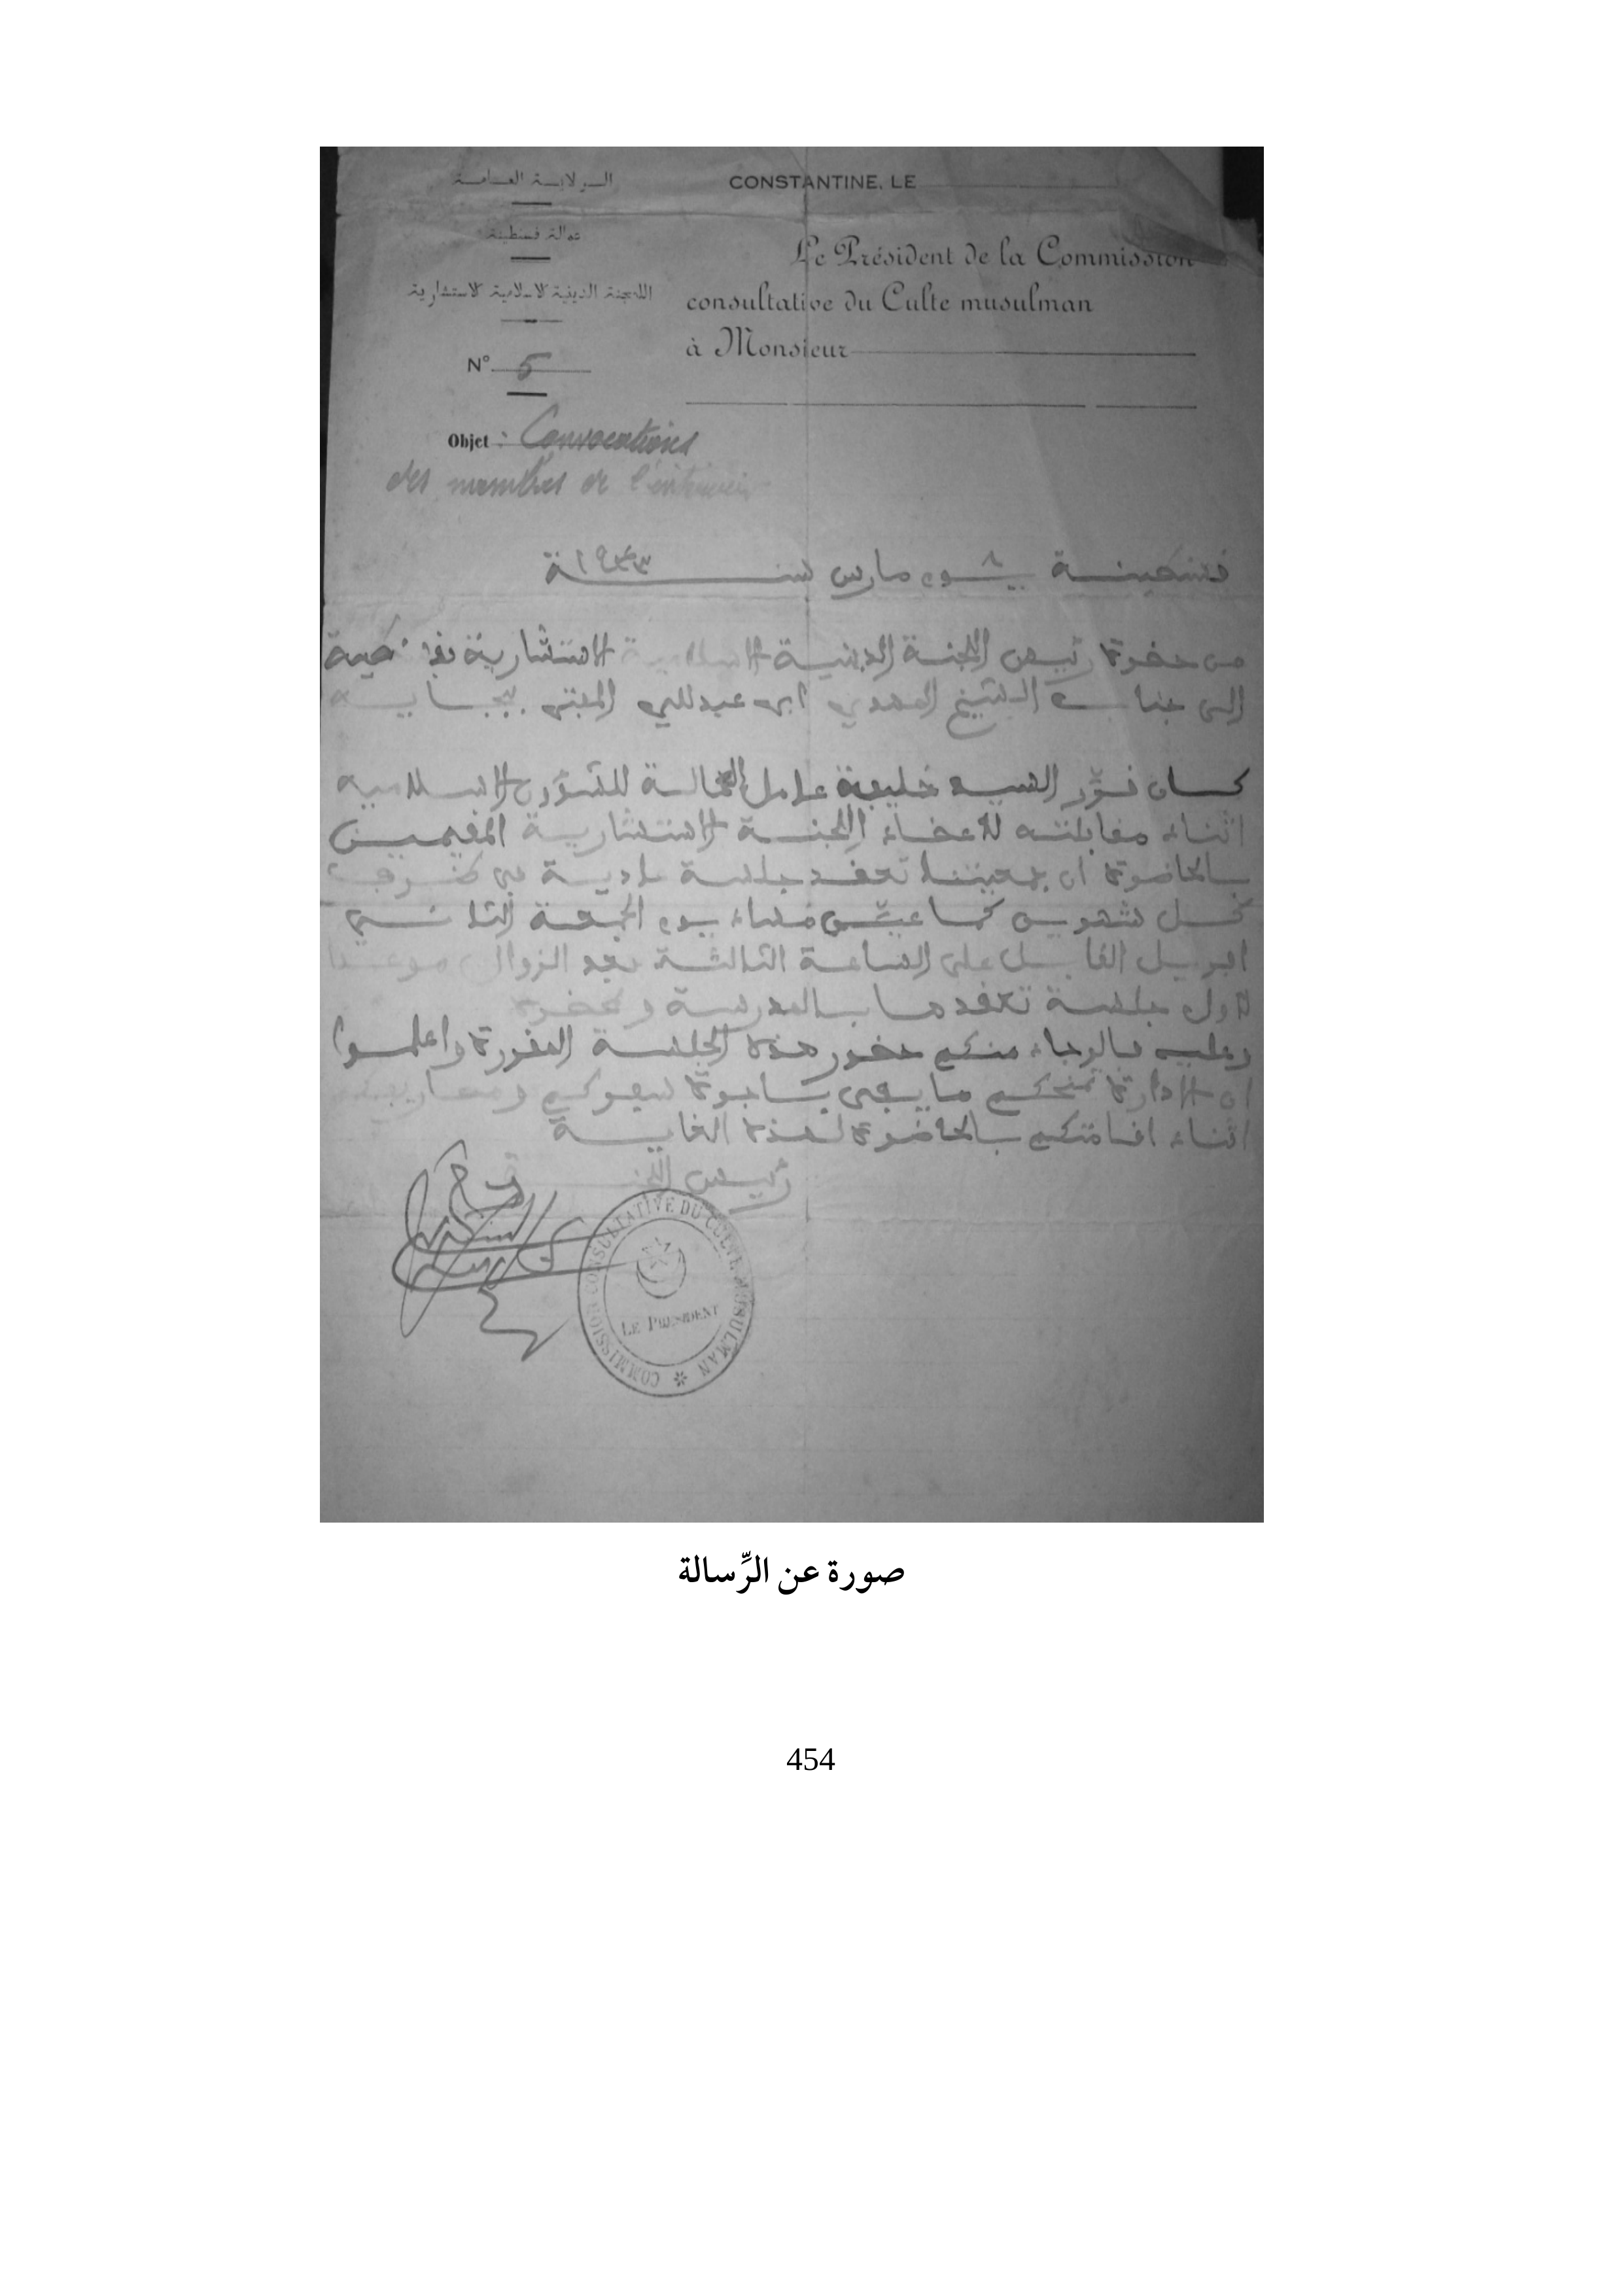 الولاية العامة
عمالة قسنطينة
اللجنة الدينية الاسلامية الاستشارية
N° 5
Objet : Convocations
des membres de l'intérieur
CONSTANTINE, LE
Le Président de la Commission
consultative du Culte musulman
à Monsieur
قسنطينة يوم مارس سنة ١٩٣٣
من حضرة رئيس اللجنة الدينية الاسلامية الاستشارية
الى جناب الشيخ المهدي ابى عبدللي المفتى ببجاية
كان قرّر السيد خليفة عامل العمالة للشؤون الاسلامية
اثناء مقابلته لاعضاء اللجنة الاستشارية المقيمين
بالحاضرة ان جمعيتنا تعقد جلسة عادية فى ظرف
كل شهرين كما عيّن مساء يوم الجمعة الثانـي
ابريل القابل على الساعة الثالثة بعد الزوال موعدا
لاول جلسة تعقدها بالمدرسة
وعليه فالرجاء منكم حضور هذه الجلسة المقررة واعلموا
ان الادارة تمنحكم ما يفى باجرة سفركم ومصاريفكم
اثناء اقامتكم بالحاضرة لهذه الغاية
رئيس اللجنة
COMMISSION CONSULTATIVE DU CULTE MUSULMAN
LE PRESIDENT
صورة عن الرِّسالة
454